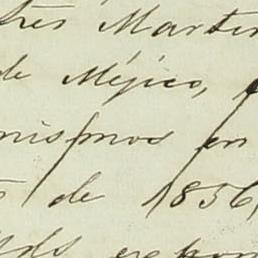 tres Martin
de Méjico,
mismos en
de 1856